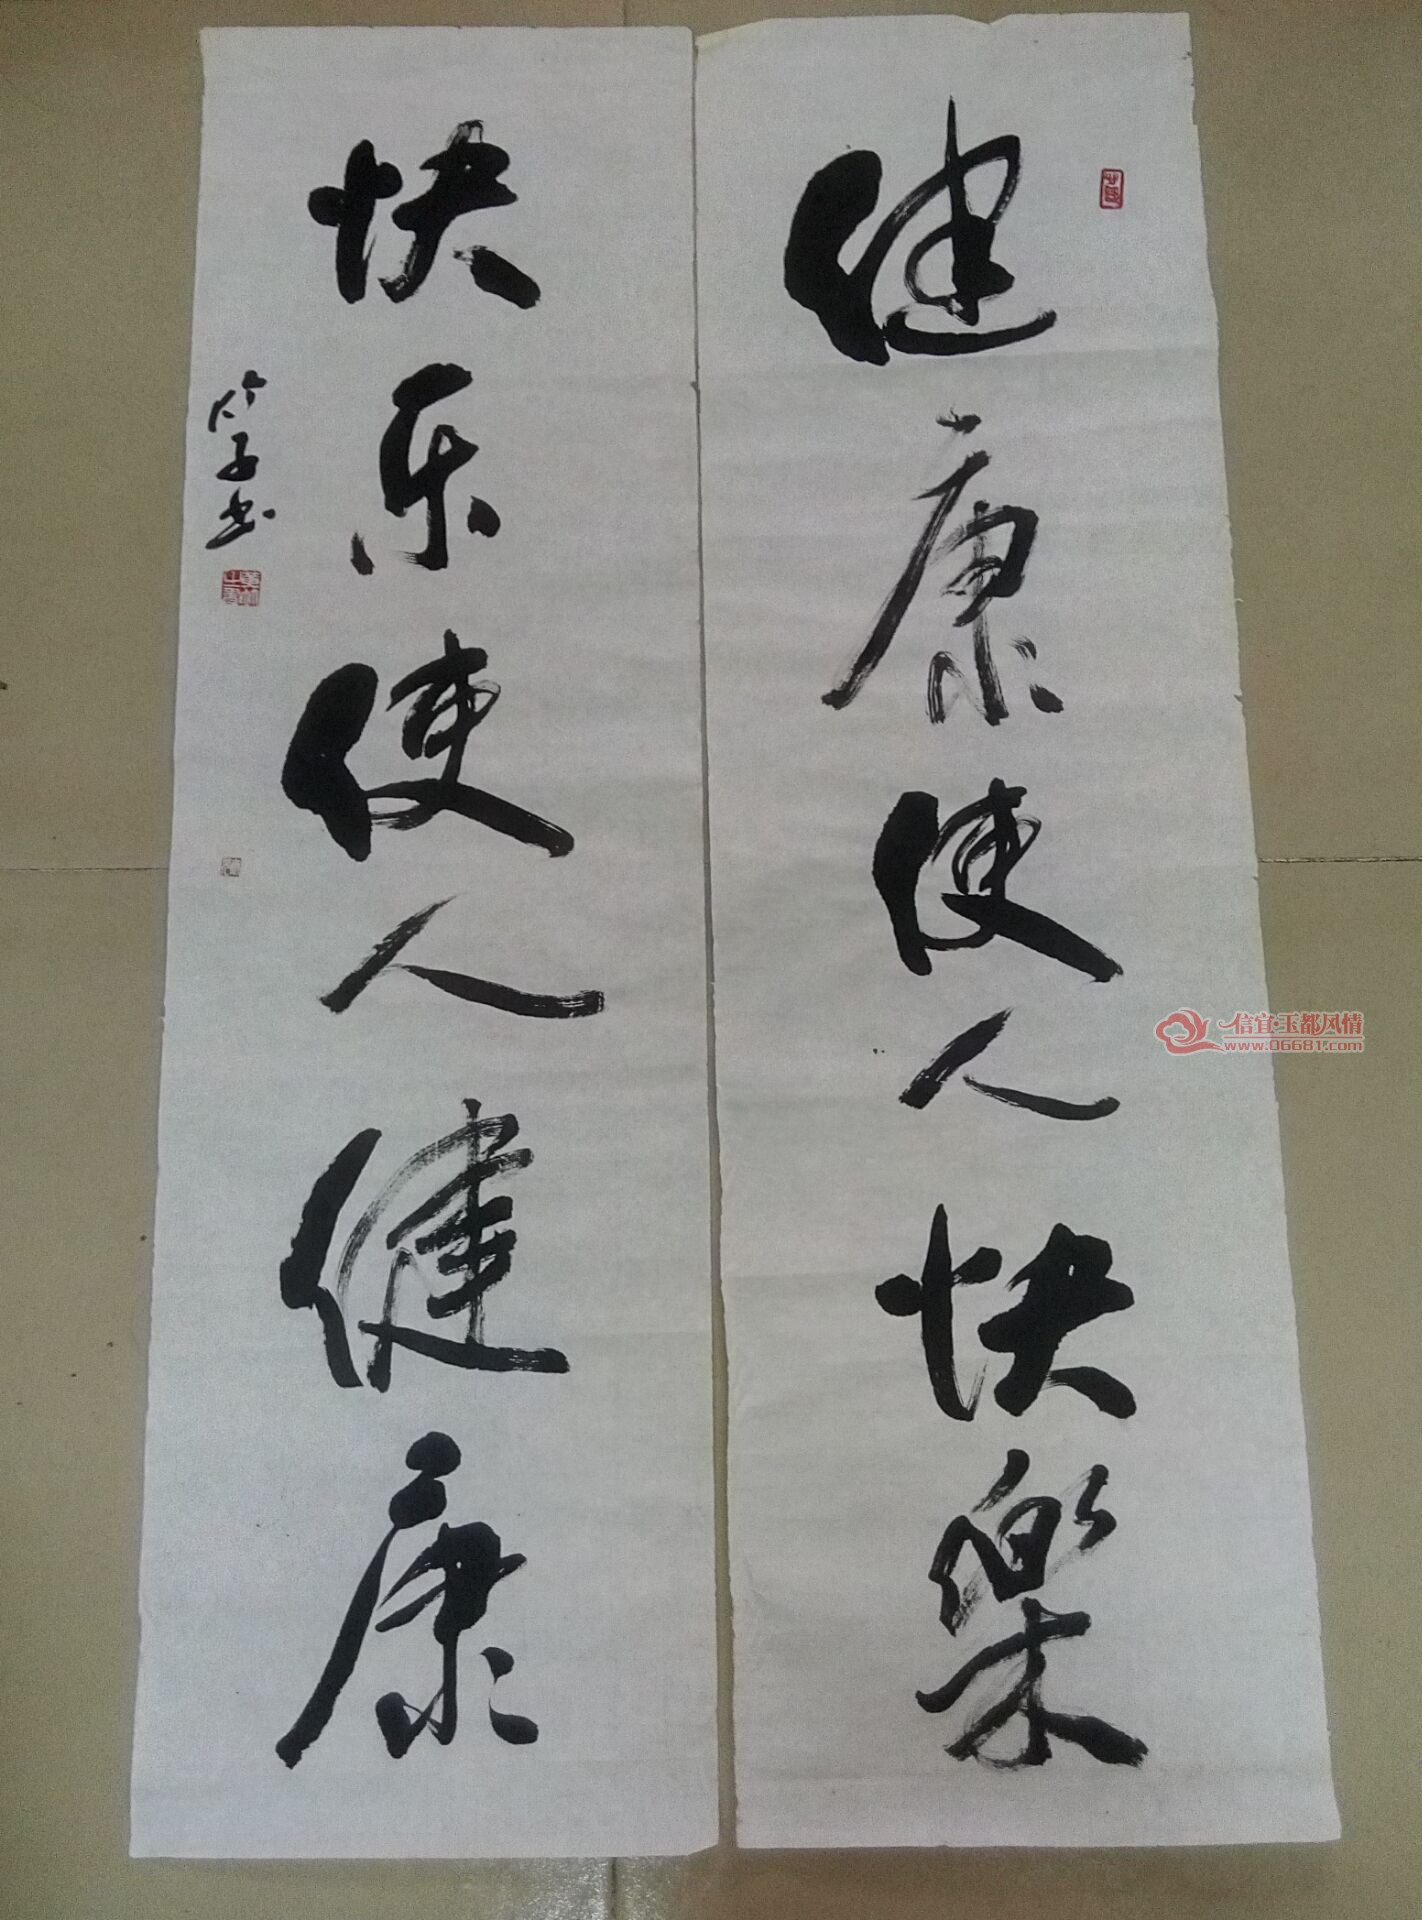 健康使人快樂
快乐使人健康
信宜玉都风情
www.06681.com